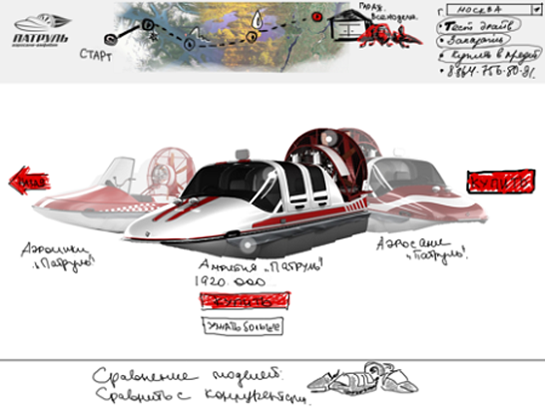 ПАТРУЛЬ
СТАРТ
Гараж
Вседорога.
МОСКВА
Тест драйв
Заказать
Купить в кредит
КУПИТЬ
Аэролодки
"Патруль"
Амфибия "Патруль"
1920.000
КУПИТЬ
УЗНАТЬ БОЛЬШЕ
Аэросани
"Патруль"
Сравнение моделей.
Сравнить с конкурентами.